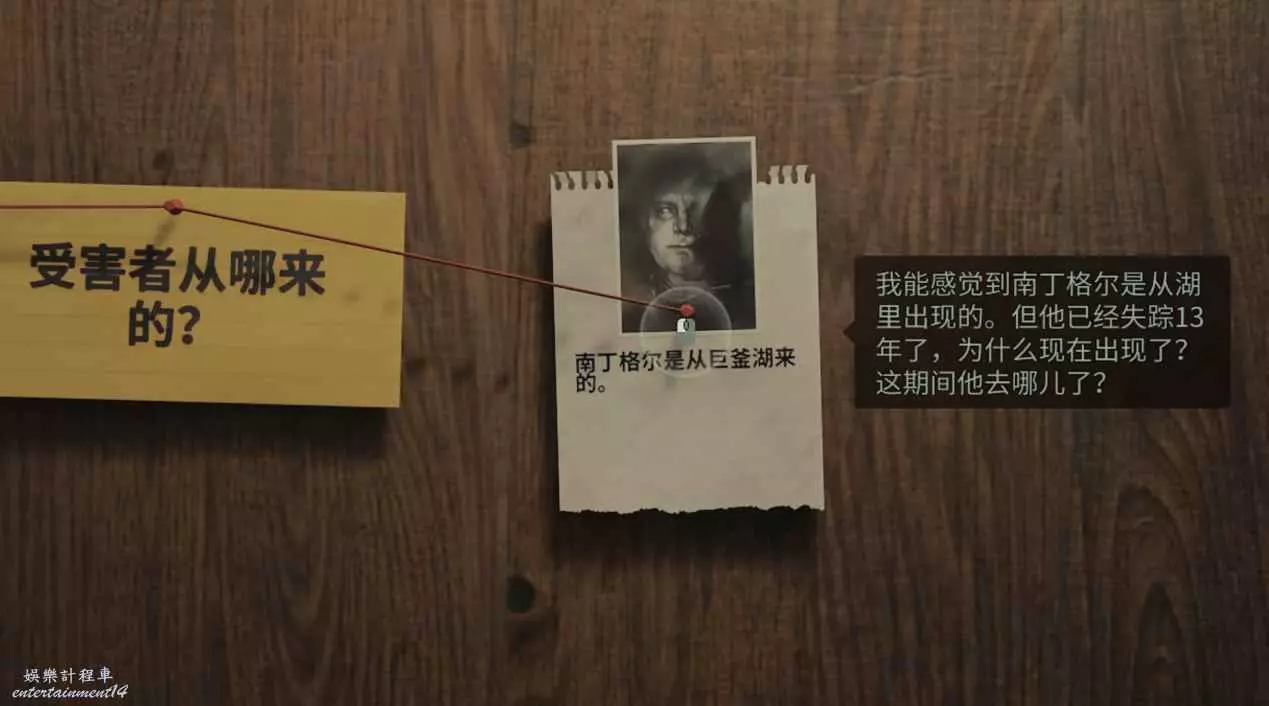 受害者从哪来
的？
南丁格尔是从巨釜湖来
的。
我能感觉到南丁格尔是从湖
里出现的。但他已经失踪13
年了，为什么现在出现了？
这期间他去哪儿了？
娛樂計程車
entertainment14